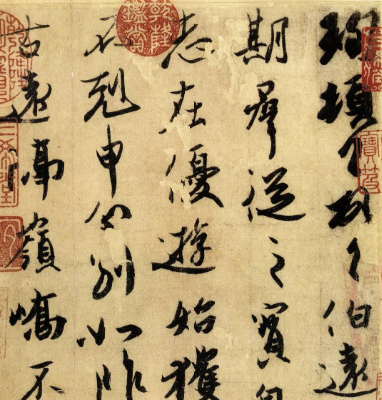 珣頓首頓首伯遠
期羣從之寶自
志在優遊始獲
不剋申分別如昨
古遠隔嶺嶠不